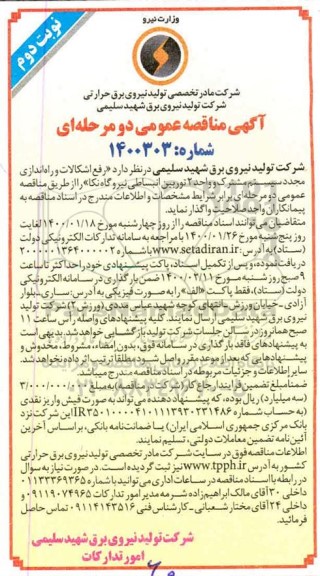 وزارت نیرو
نوبت دوم
شرکت مادر تخصصی تولید نیروی برق حرارتی
شرکت تولید نیروی برق شهید سلیمی
آگهی مناقصه عمومی دو مرحله‌ای
شماره: ۱۴۰۰۳۰۳
شرکت تولید نیروی برق شهید سلیمی در نظر دارد «رفع اشکالات و راه‌اندازی
مجدد سیستم محرکه واحد ۲ توربین انبساطی نیروگاه نکا» را از طریق مناقصه
عمومی دو مرحله‌ای برابر شرایط مشخصات و اطلاعات مندرج در اسناد مناقصه به
پیمانکاران واجد صلاحیت واگذار نماید.
متقاضیان می‌توانند اسناد مناقصه را از روز چهارشنبه مورخ ۱۴۰۰/۰۱/۱۸ لغایت
روز پنج‌شنبه مورخ ۱۴۰۰/۰۱/۲۶ با مراجعه به سامانه تدارکات الکترونیکی دولت
(ستاد) به آدرس: www.setadiran.ir با شماره ۲۰۰۰۰۰۱۱۳۶۴۰۰۰۰۰۲
دریافت نموده و پس از تکمیل اسناد، پاکت پیشنهادی خود را حداکثر تا ساعت
۹ صبح روز شنبه مورخ ۱۴۰۰/۰۲/۱۱ ضمن بارگذاری در سامانه الکترونیکی
دولت (ستاد)، فقط پاکت «الف» را به صورت فیزیکی به آدرس: ساری- بلوار
آزادی- خیابان ورزش- انتهای کوچه شهید سلیمی عبدی (ورزش ۳) شرکت تولید
نیروی برق شهید سلیمی ارسال نمایند. کلیه پیشنهادهای واصله راس ساعت ۱۱
صبح همانروز در سالن جلسات شرکت تولید بازگشایی خواهد شد. بدیهی است
به پیشنهادهای فاقد بارگذاری در سامانه فوق، بدون امضاء، مشروط، مخدوش و
پیشنهادهایی که بعد از موعد مقرر واصل شود مطلقا ترتیب اثر داده نخواهد شد.
سایر اطلاعات و جزئیات مربوطه در اسناد مناقصه مندرج میباشد.
ضمنا مبلغ تضمین فرایند ارجاع کار (شرکت در مناقصه) به مبلغ ۳/۰۰۰/۰۰۰/۰۰۰
(سه میلیارد) ریال بوده، که پیشنهاد دهنده می‌تواند به صورت فیش واریز نقدی
(به حساب شماره
بانک مرکزی جمهوری اسلامی ایران) یا ضمانتنامه بانکی، براساس آخرین
آئین نامه تضمین معاملات دولتی، تسلیم نمایند.
اطلاعات مناقصه فوق در سایت شرکت مادر تخصصی تولید نیروی برق حرارتی
کشور به آدرس www.tpph.ir نیز ثبت گردیده است. در صورت نیاز به سوال
در رابطه با اسناد مناقصه در ساعات اداری می‌توانید با شماره ۰۱۱۳۳۳۶۹۳۶۵
داخلی ۳۰ آقای مالک ابراهیم زاده شرمه مدیر امور تدارکات ۰۹۱۱۹۰۷۴۹۶۵ و
داخلی ۲۴ آقای مختار شعبانی- کارشناس فنی ۰۹۱۱۴۱۴۳۵۱۶ تماس حاصل
فرمائید.
شرکت تولید نیروی برق شهید سلیمی
امور تدارکات